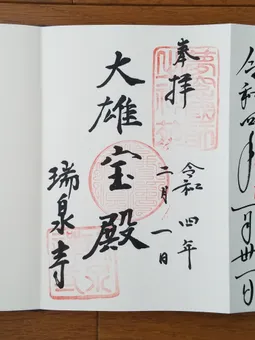 令和四年一月卅一日
奉拝
令和四年
二月一日
大雄宝殿
瑞泉寺